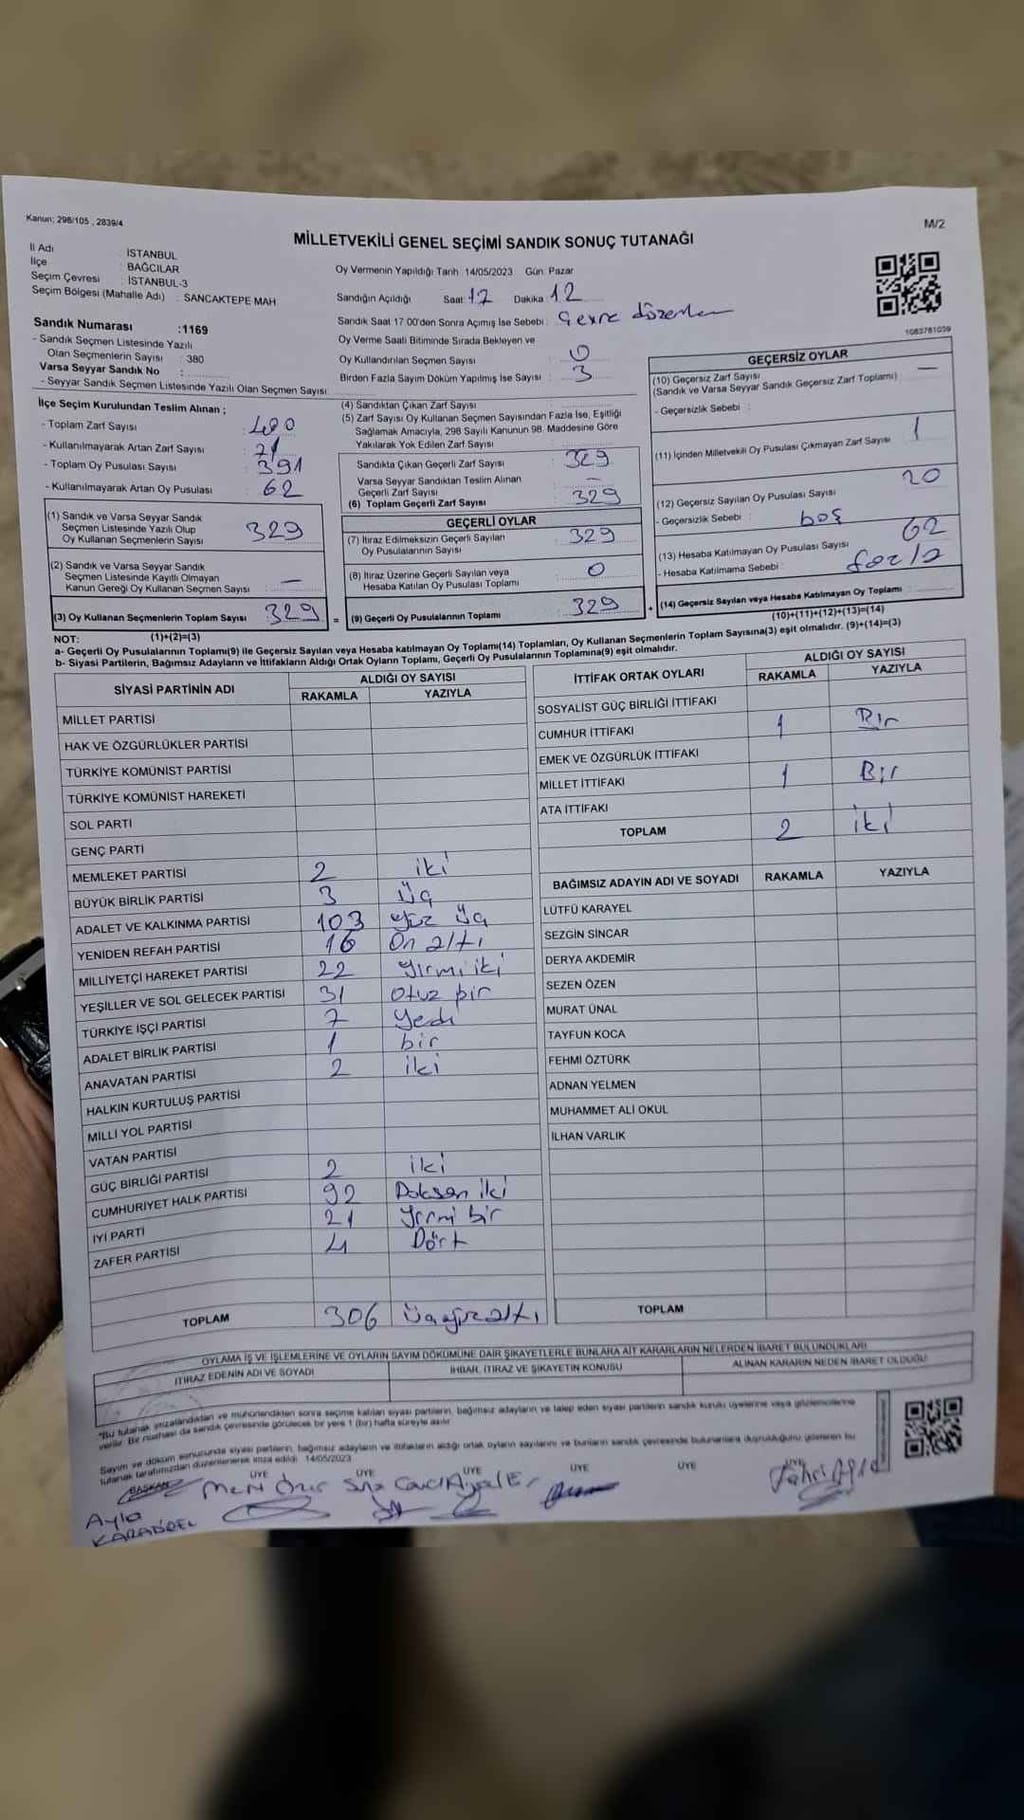 Kanun: 298/105 , 2839/4
M/2
MİLLETVEKİLİ GENEL SEÇİMİ SANDIK SONUÇ TUTANAĞI
İl Adı : İSTANBUL
İlçe : BAĞCILAR
Seçim Çevresi : İSTANBUL-3
Seçim Bölgesi (Mahalle Adı) : SANCAKTEPE MAH.
Oy Vermenin Yapıldığı Tarih: 14/05/2023 Gün: Pazar
Sandığın Açıldığı Saat: 17 Dakika: 12
Sandık Saat 17.00'den Sonra Açımış İse Sebebi : Çevre
Oy Verme Saati Bitiminde Sırada Bekleyen ve
Oy Kullandırılan Seçmen Sayısı : 0
Birden Fazla Sayım Döküm Yapılmış İse Sayısı : 3
1083761039
Sandık Numarası :1169
- Sandık Seçmen Listesinde Yazılı
Olan Seçmenlerin Sayısı : 380
Varsa Seyyar Sandık No :
- Seyyar Sandık Seçmen Listesinde Yazılı Olan Seçmen Sayısı:
İlçe Seçim Kurulundan Teslim Alınan ;
- Toplam Zarf Sayısı : 400
- Kullanılmayarak Artan Zarf Sayısı : 71
- Toplam Oy Pusulası Sayısı : 391
- Kullanılmayarak Artan Oy Pusulası : 62
(1) Sandık ve Varsa Seyyar Sandık
Seçmen Listesinde Yazılı Olup
Oy Kullanan Seçmenlerin Sayısı 329
(2) Sandık ve Varsa Seyyar Sandık
Seçmen Listesinde Kayıtlı Olmayan
Kanun Gereği Oy Kullanan Seçmen Sayısı : —
(3) Oy Kullanan Seçmenlerin Toplam Sayısı 329
(1)+(2)=(3)
(4) Sandıktan Çıkan Zarf Sayısı :
(5) Zarf Sayısı Oy Kullanan Seçmen Sayısından Fazla İse, Eşitliği
Sağlamak Amacıyla, 298 Sayılı Kanunun 98. Maddesine Göre
Yakılarak Yok Edilen Zarf Sayısı :
Sandıkta Çıkan Geçerli Zarf Sayısı : 329
Varsa Seyyar Sandıktan Teslim Alınan
Geçerli Zarf Sayısı : —
(6) Toplam Geçerli Zarf Sayısı : 329
GEÇERLİ OYLAR
(7) İtiraz Edilmeksizin Geçerli Sayılan
Oy Pusulalarının Sayısı : 329
(8) İtiraz Üzerine Geçerli Sayılan veya
Hesaba Katılan Oy Pusulası Toplamı : 0
= (9) Geçerli Oy Pusulalarının Toplamı : 329
GEÇERSİZ OYLAR
(10) Geçersiz Zarf Sayısı : —
(Sandık ve Varsa Seyyar Sandık Geçersiz Zarf Toplamı)
- Geçersizlik Sebebi :
(11) İçinden Milletvekili Oy Pusulası Çıkmayan Zarf Sayısı : 1
(12) Geçersiz Sayılan Oy Pusulası Sayısı : 20
- Geçersizlik Sebebi : boş
(13) Hesaba Katılmayan Oy Pusulası Sayısı : 62
- Hesaba Katılmama Sebebi : fazla
+ (14) Geçersiz Sayılan veya Hesaba Katılmayan Oy Toplamı :
(10)+(11)+(12)+(13)=(14)
NOT:
a- Geçerli Oy Pusulalarının Toplamı(9) ile Geçersiz Sayılan veya Hesaba katılmayan Oy Toplamı(14) Toplamları, Oy Kullanan Seçmenlerin Toplam Sayısına(3) eşit olmalıdır. (9)+(14)=(3)
b- Siyasi Partilerin, Bağımsız Adayların ve İttifakların Aldığı Ortak Oyların Toplamı, Geçerli Oy Pusulalarının Toplamına(9) eşit olmalıdır.
SİYASİ PARTİNİN ADI ALDIĞI OY SAYISI
RAKAMLA YAZIYLA
MİLLET PARTİSİ
HAK VE ÖZGÜRLÜKLER PARTİSİ
TÜRKİYE KOMÜNİST PARTİSİ
TÜRKİYE KOMÜNİST HAREKETİ
SOL PARTİ
GENÇ PARTİ
MEMLEKET PARTİSİ 2 iki
BÜYÜK BİRLİK PARTİSİ 3 üç
ADALET VE KALKINMA PARTİSİ 103 yüz üç
YENİDEN REFAH PARTİSİ 16 On altı
MİLLİYETÇİ HAREKET PARTİSİ 22 yirmi iki
YEŞİLLER VE SOL GELECEK PARTİSİ 31 Otuz bir
TÜRKİYE İŞÇİ PARTİSİ 7 yedi
ADALET BİRLİK PARTİSİ 1 bir
ANAVATAN PARTİSİ 2 iki
HALKIN KURTULUŞ PARTİSİ
MİLLİ YOL PARTİSİ
VATAN PARTİSİ
GÜÇ BİRLİĞİ PARTİSİ 2 iki
CUMHURİYET HALK PARTİSİ 92 Doksan iki
İYİ PARTİ 21 yirmi bir
ZAFER PARTİSİ 4 Dört
TOPLAM 306 Üçyüzaltı
İTTİFAK ORTAK OYLARI ALDIĞI OY SAYISI
RAKAMLA YAZIYLA
SOSYALİST GÜÇ BİRLİĞİ İTTİFAKI
CUMHUR İTTİFAKI 1 Bir
EMEK VE ÖZGÜRLÜK İTTİFAKI
MİLLET İTTİFAKI 1 Bir
ATA İTTİFAKI
TOPLAM 2 iki
BAĞIMSIZ ADAYIN ADI VE SOYADI RAKAMLA YAZIYLA
LÜTFÜ KARAYEL
SEZGİN SİNCAR
DERYA AKDEMİR
SEZEN ÖZEN
MURAT ÜNAL
TAYFUN KOCA
FEHMİ ÖZTÜRK
ADNAN YELMEN
MUHAMMET ALİ OKUL
İLHAN VARLIK
TOPLAM
OYLAMA İŞ VE İŞLEMLERİNE VE OYLARIN SAYIM DÖKÜMÜNE DAİR ŞİKAYETLERLE BUNLARA AİT KARARLARIN NELERDEN İBARET BULUNDUKLARI
İTİRAZ EDENİN ADI VE SOYADI İHBAR, İTİRAZ VE ŞİKAYETİN KONUSU ALINAN KARARIN NEDEN İBARET OLDUĞU
"Bu tutanak imzalandıktan ve mühürlendikten sonra seçime katılan siyasi partilerin, bağımsız adayların ve talep eden siyasi partilerin sandık kurulu üyelerine veya gözlemcilerine
verilir. Bir nüshası da sandık çevresinde görülecek bir yere 1 (bir) hafta süreyle asılır.
Sayım ve döküm sonucunda siyasi partilerin, bağımsız adayların ve ittifakların aldığı ortak oyların sayılarını ve bunların sandık çevresinde bulunanlara duyurulduğunu gösteren bu
tutanak tarafımızdan düzenlenerek imza edildi. 14/05/2023
BAŞKAN ÜYE ÜYE ÜYE ÜYE ÜYE ÜYE